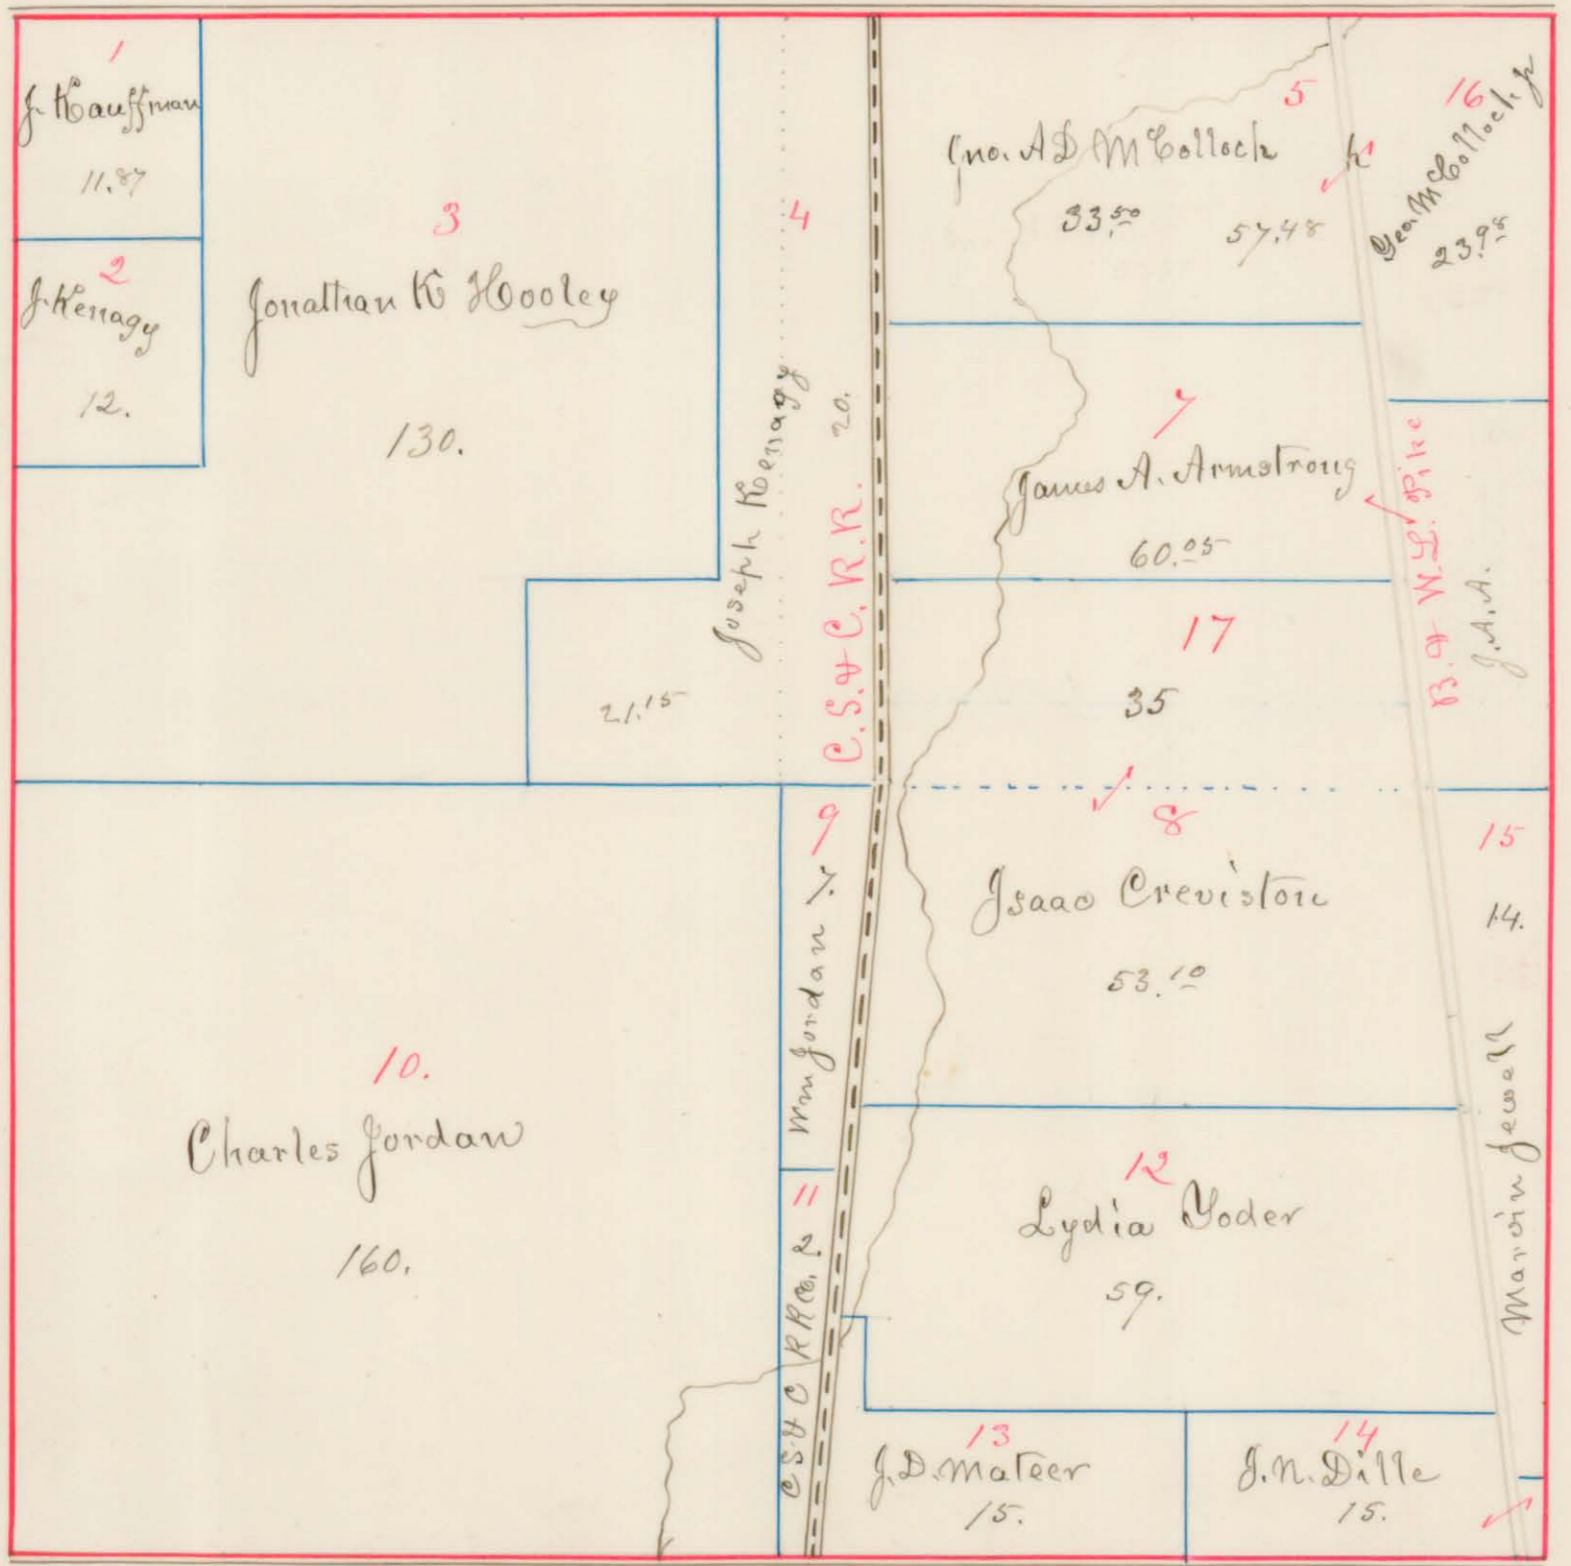 1
J. Kauffman
11.87
2
J. Kenagy
12.
3
Jonathan K Hooley
130.
21.15
4
Joseph Kenagy
20.
C. S. & C. R. R.
5
Jno. A D McColloch
33.50
57.48
16
Geo. McColloch Jr
23.98
7
James A. Armstrong
60.05
B. & W. L. Pike
J. A. A.
17
35
8
Isaac Creviston
53.10
9
Wm Jordan 7.
10.
Charles Jordan
160.
11
C S & C R R Co. 2
12
Lydia Yoder
59.
15
14.
Marvin Jewell
13
J. D. Mateer
15.
14
J. N. Dille
15.